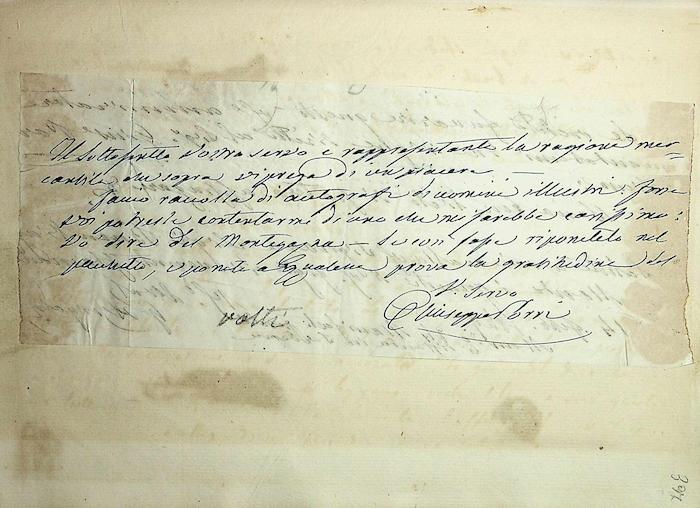 Il Sottoscritto Vostro servo e rappresentante la ragione mer=
cantile di sopra vi prega di un piacere. —
Faccio raccolta di autografi di uomini illustri. Forse
voi potreste contentarmi di uno che mi sarebbe carissimo:
Vo dire del Montegagna — Se con fosse riponetelo nel
pacchetto, e ponete a Qualche prova la gratitudine del
V. Servo
Giuseppe
volti